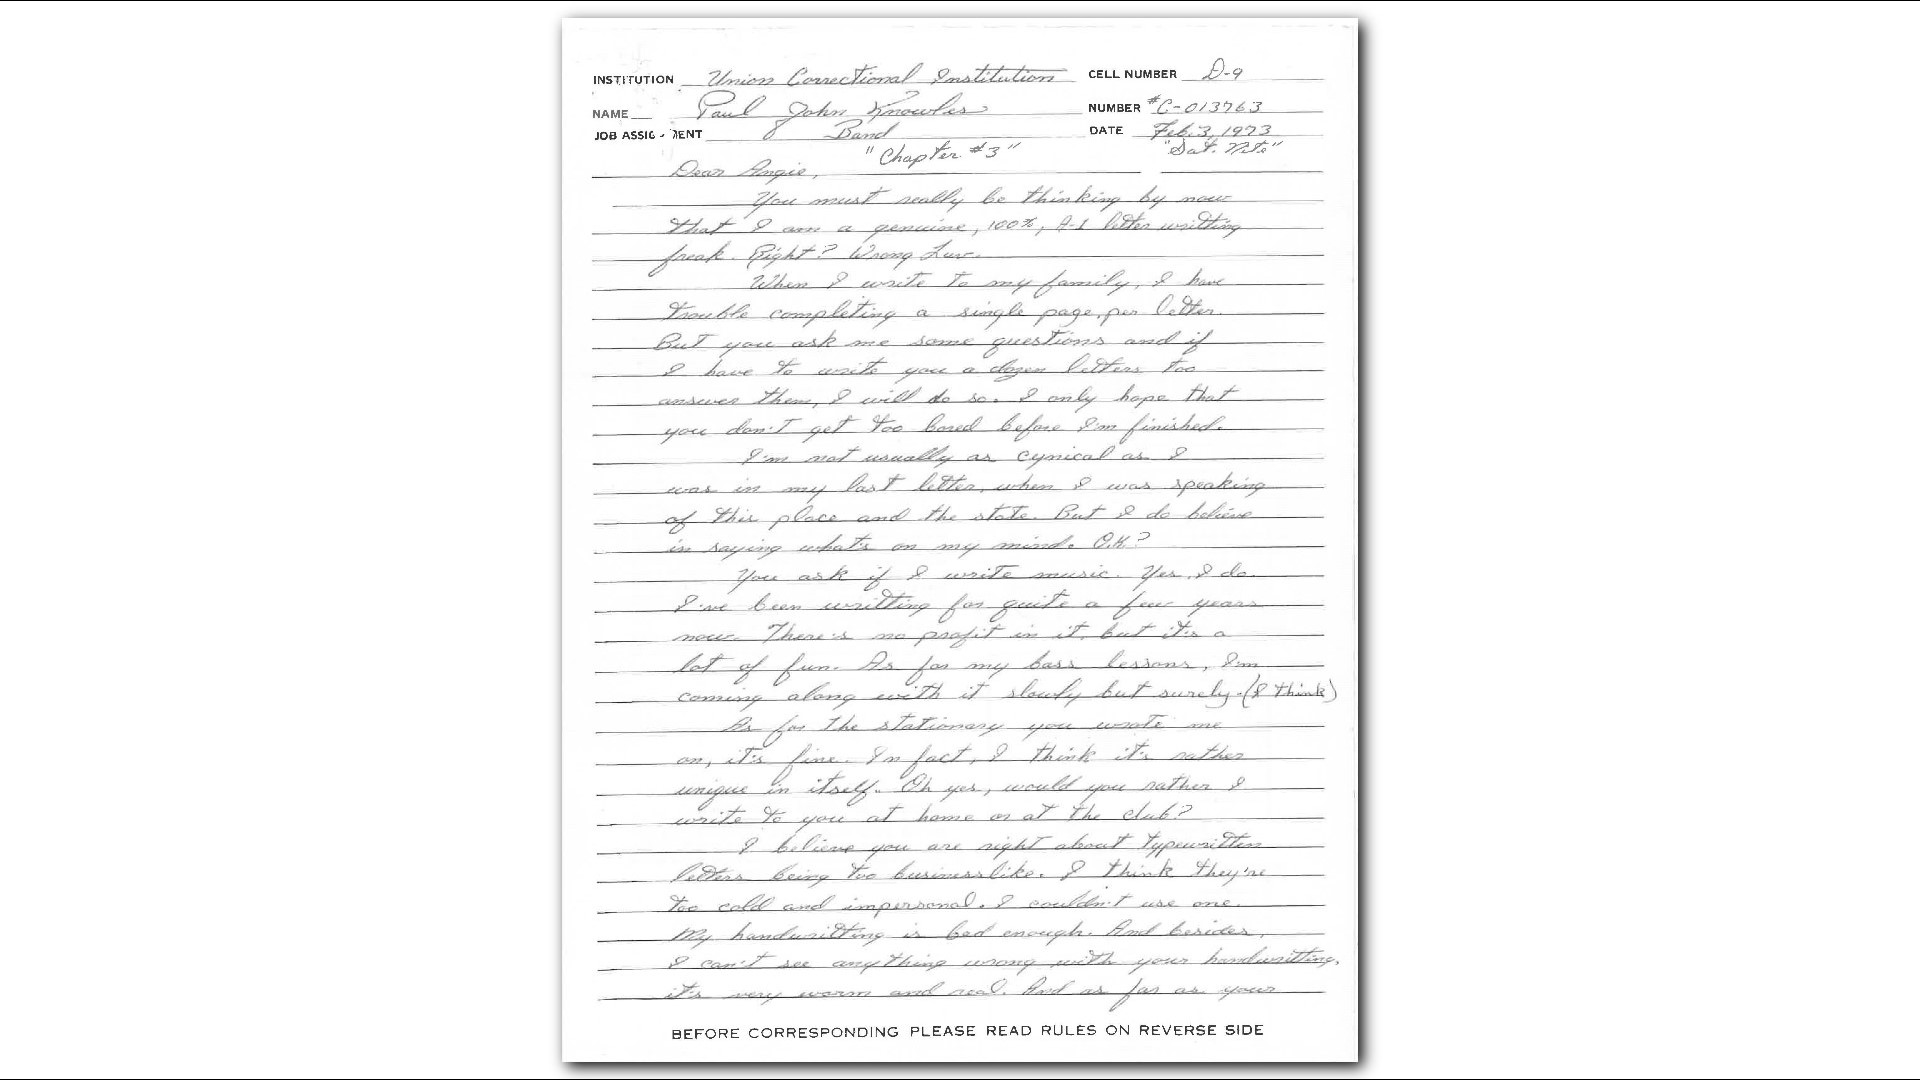 INSTITUTION Union Correctional Institution CELL NUMBER D-9
NAME Paul John Knowles NUMBER #C-013763
JOB ASSIG - MENT Band DATE Feb. 3, 1973
"Chapter #3" "Sat. Nite"
Dear Angie,
You must really be thinking by now
that I am a genuine, 100%, A-1 letter writting
freak. Right? Wrong Luv.
When I write to my family, I have
trouble completing a single page, per letter.
But you ask me some questions and if
I have to write you a dozen letters too
answer them, I will do so. I only hope that
you don't get too bored before I'm finished.
I'm not usually as cynical as I
was in my last letter, when I was speaking
of this place and the state. But I do believe
in saying what's on my mind. O.K?
You ask if I write music. Yes, I do.
I've been writting for quite a few years
now. There's no profit in it, but it's a
lot of fun. As for my bass lessons, I'm
coming along with it slowly but surely. (I think)
As for the stationary you wrote me
on, it's fine. In fact, I think it's rather
unique in itself. Oh yes, would you rather I
write to you at home or at the club?
I believe you are right about typewritten
letters being too businesslike. I think they're
too cold and impersonal. I couldn't use one.
My handwritting is bad enough. And besides,
I can't see anything wrong with your handwritting,
it's very warm and real. And as far as your
BEFORE CORRESPONDING PLEASE READ RULES ON REVERSE SIDE